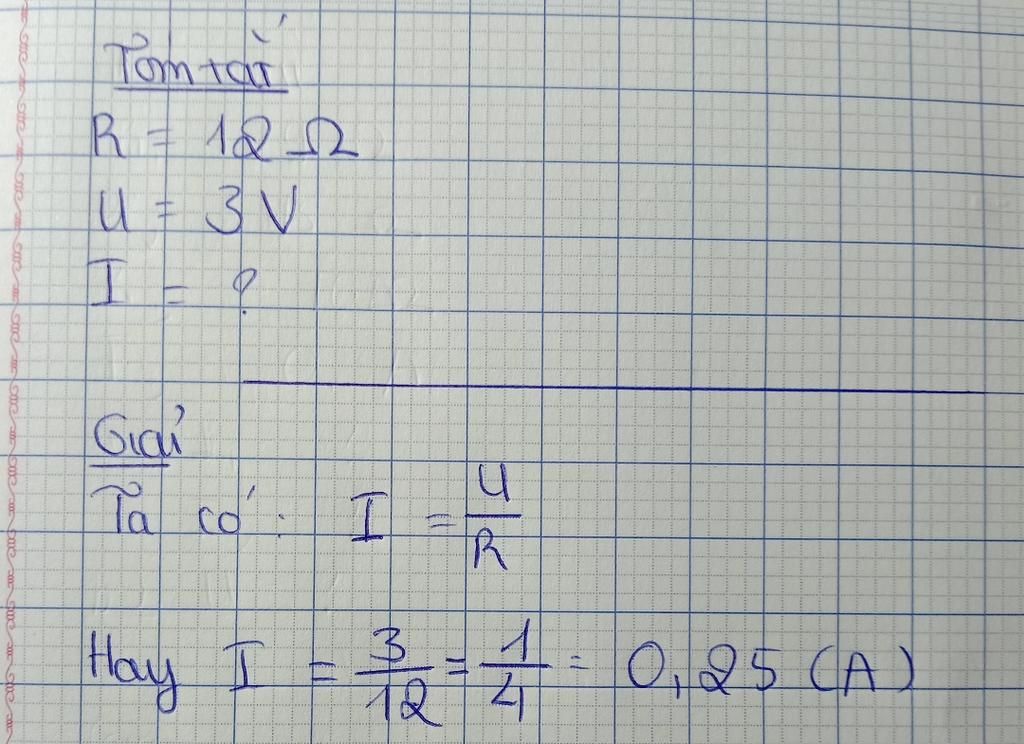 Tóm tắt
R = 12 Ω
U = 3 V
I = ?
Giải
Ta có: I = U/R
Hay I = 3/12 = 1/4 = 0,25 (A)